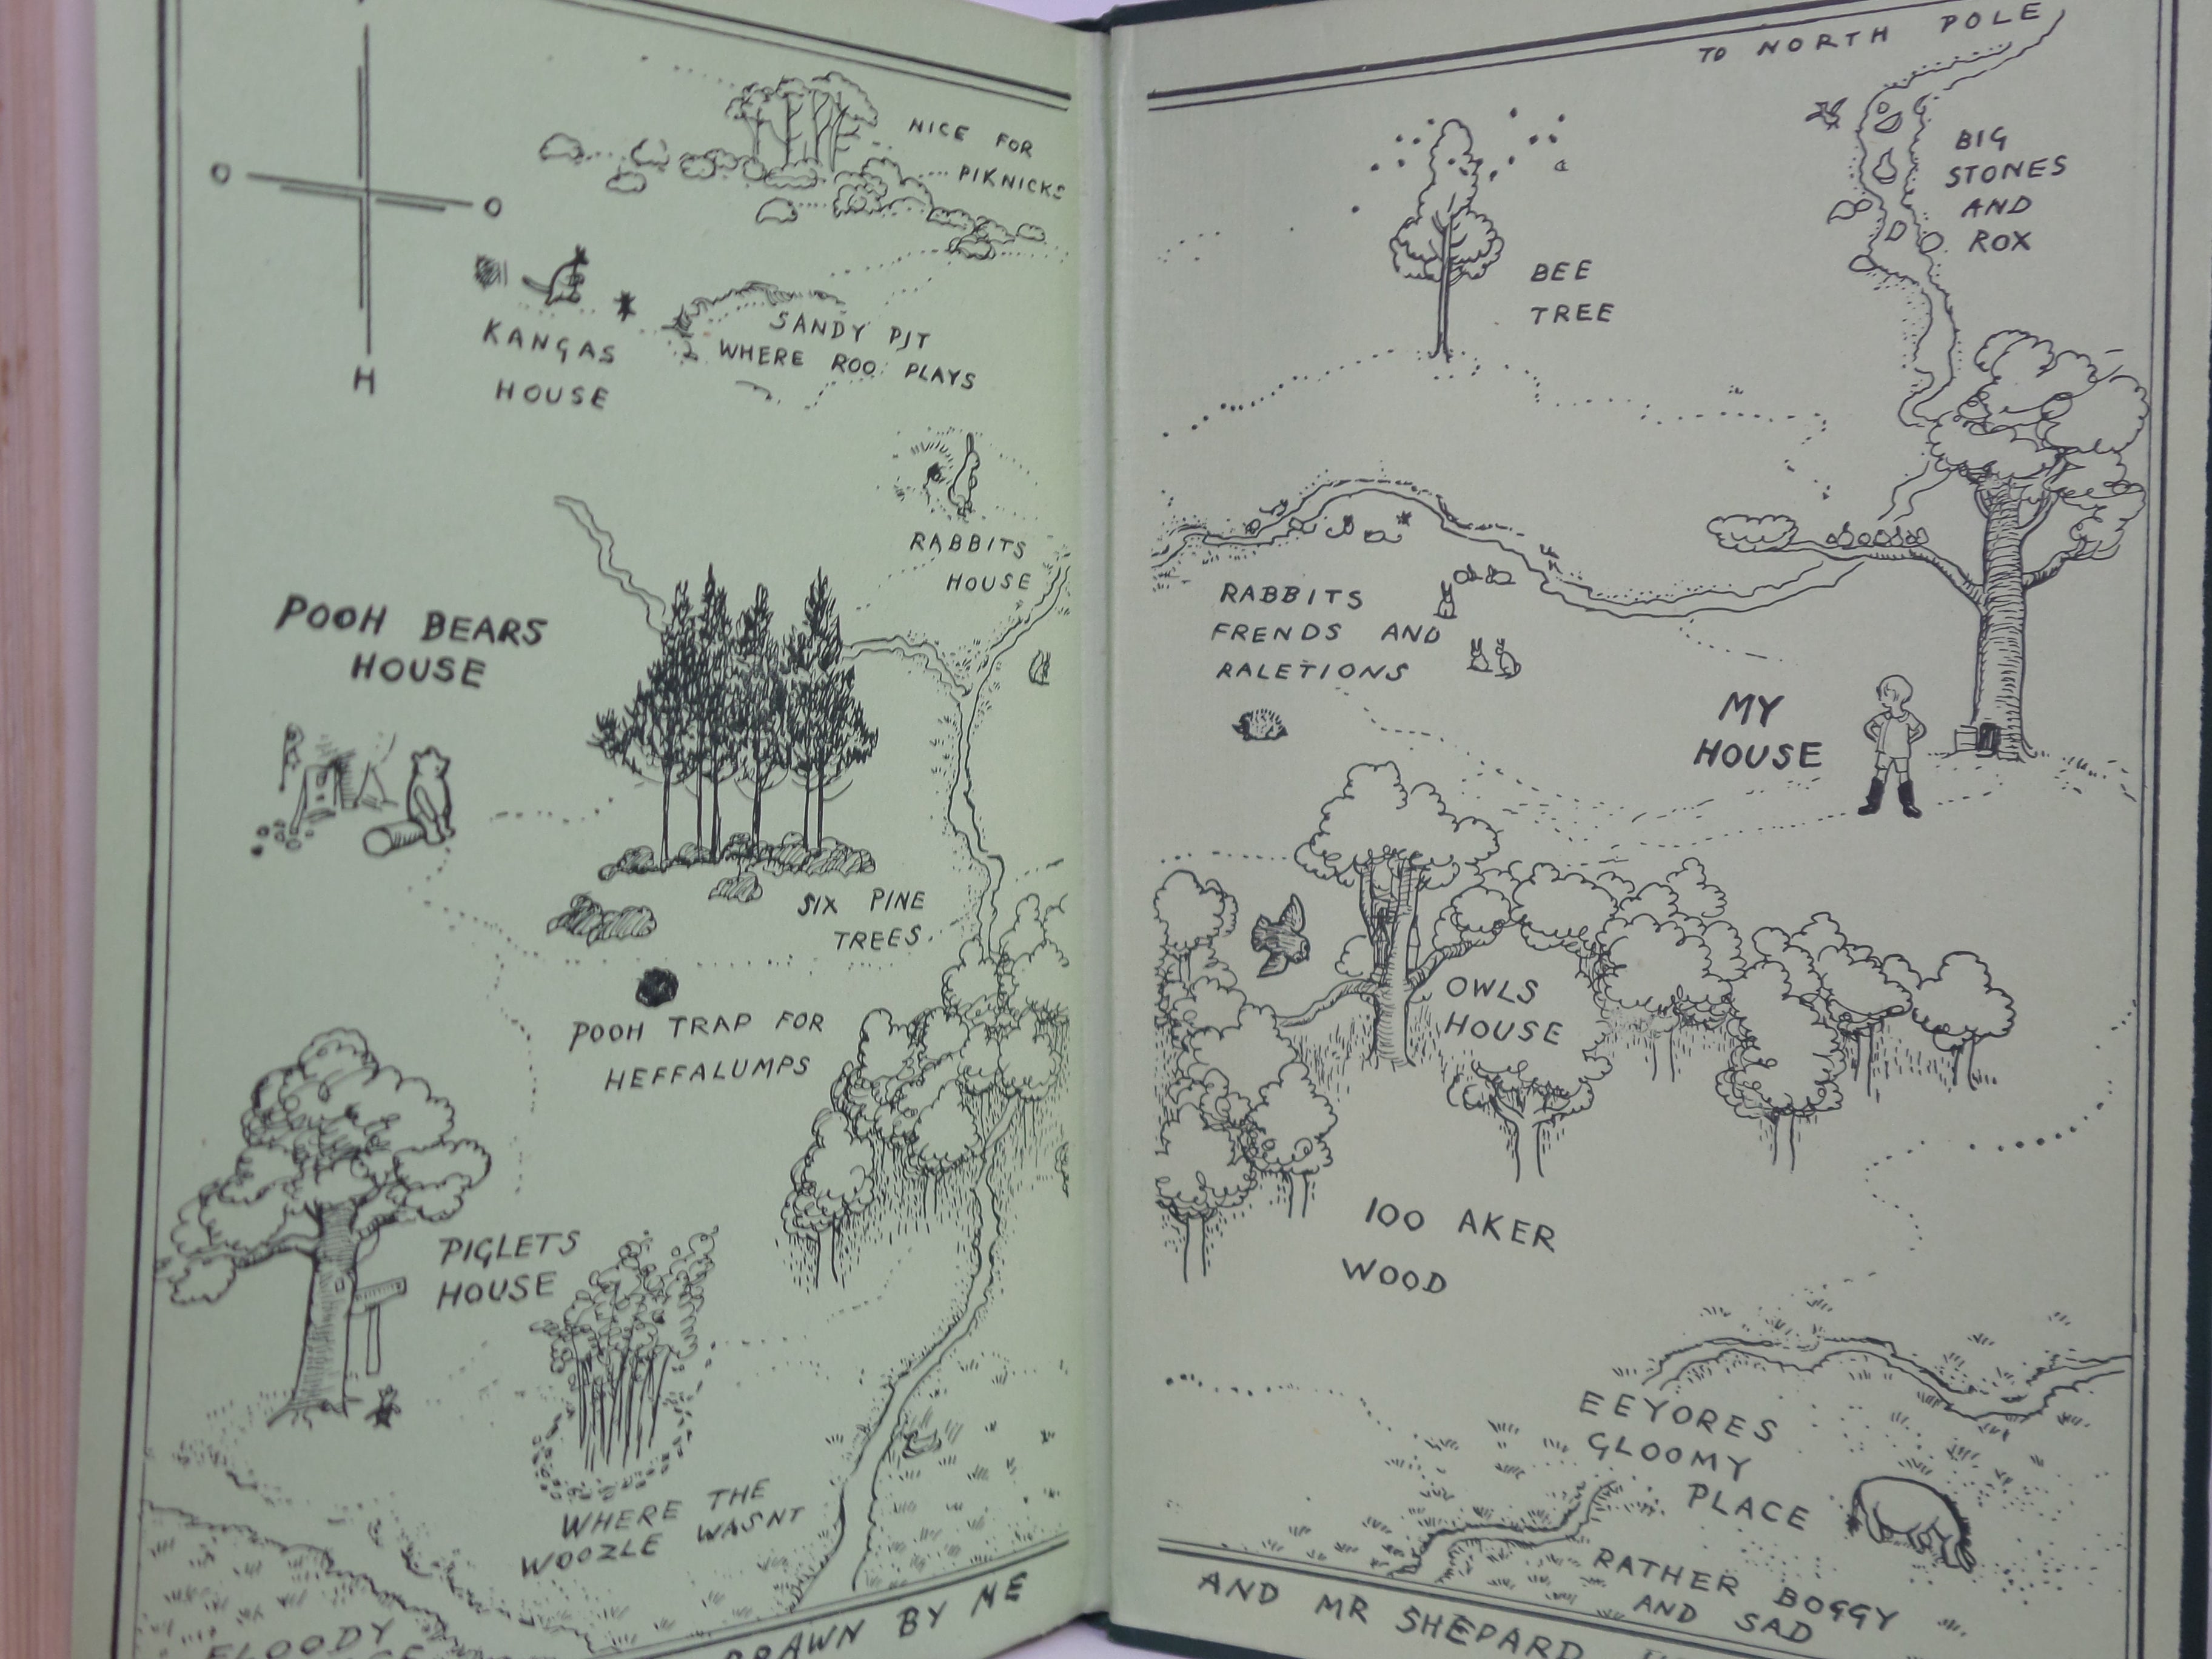 O
O
H
NICE FOR
PIKNICKS
KANGAS
HOUSE
SANDY PIT
WHERE ROO PLAYS
RABBITS
HOUSE
POOH BEARS
HOUSE
SIX PINE
TREES
POOH TRAP FOR
HEFFALUMPS
PIGLETS
HOUSE
WHERE THE
WOOZLE WASNT
FLOODY
DRAWN BY ME
TO NORTH POLE
BIG
STONES
AND
ROX
BEE
TREE
RABBITS
FRENDS AND
RALETIONS
MY
HOUSE
OWLS
HOUSE
100 AKER
WOOD
EEYORES
GLOOMY
PLACE
RATHER BOGGY
AND SAD
AND MR SHEPARD